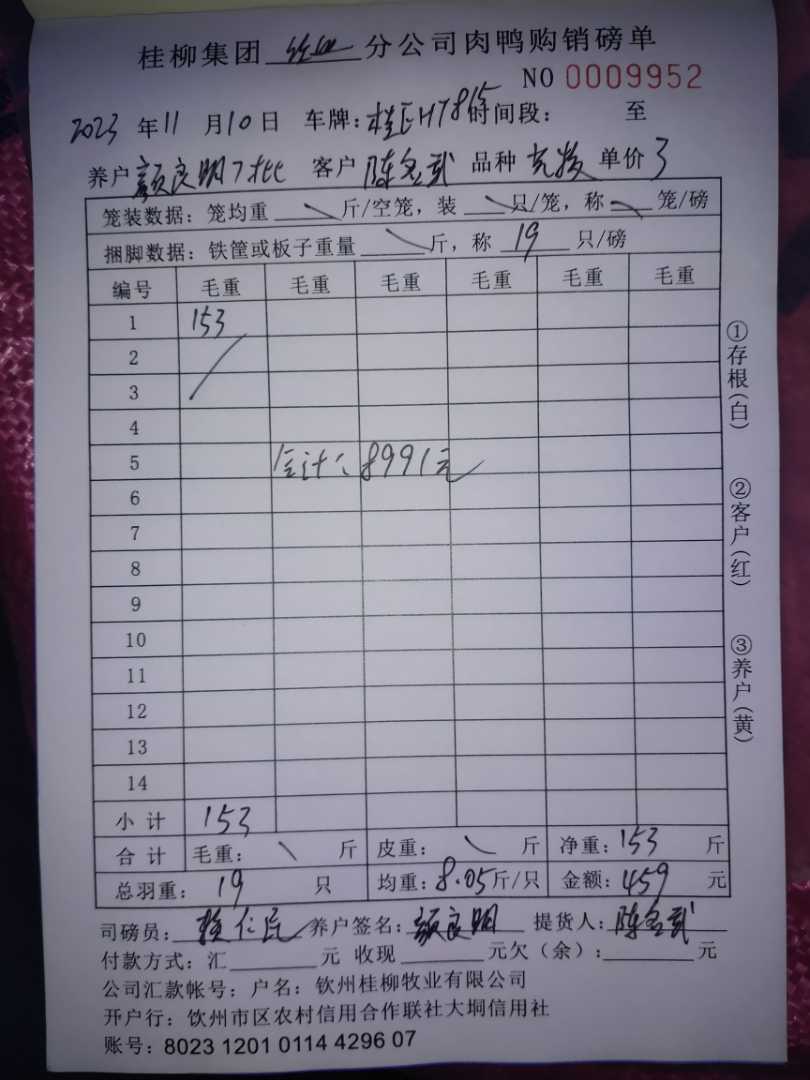 桂柳集团 分公司肉鸭购销磅单
NO 0009952
2023 年 11 月 10 日 车牌：桂EHT815 时间段： 至
养户 颜良明7批 客户 陈 武 品种 单价 3
笼装数据：笼均重 斤/空笼，装 只/笼，称 笼/磅
捆脚数据：铁筐或板子重量 斤，称 19 只/磅
编号 毛重 毛重 毛重 毛重 毛重 毛重
1 153
2
3
4
5 合计：8991元
6
7
8
9
10
11
12
13
14
小计 153
合计 毛重： 斤 皮重： 斤 净重：153 斤
总羽重：19 只 均重：8.05斤/只 金额：459 元
司磅员： 养户签名：颜良明 提货人：陈 武
付款方式：汇 元 收现 元欠（余）： 元
公司汇款帐号：户名：钦州桂柳牧业有限公司
开户行：饮州市区农村信用合作联社大垌信用社
账号：8023 1201 0114 4296 07
①存根（白）
②客户（红）
③养户（黄）